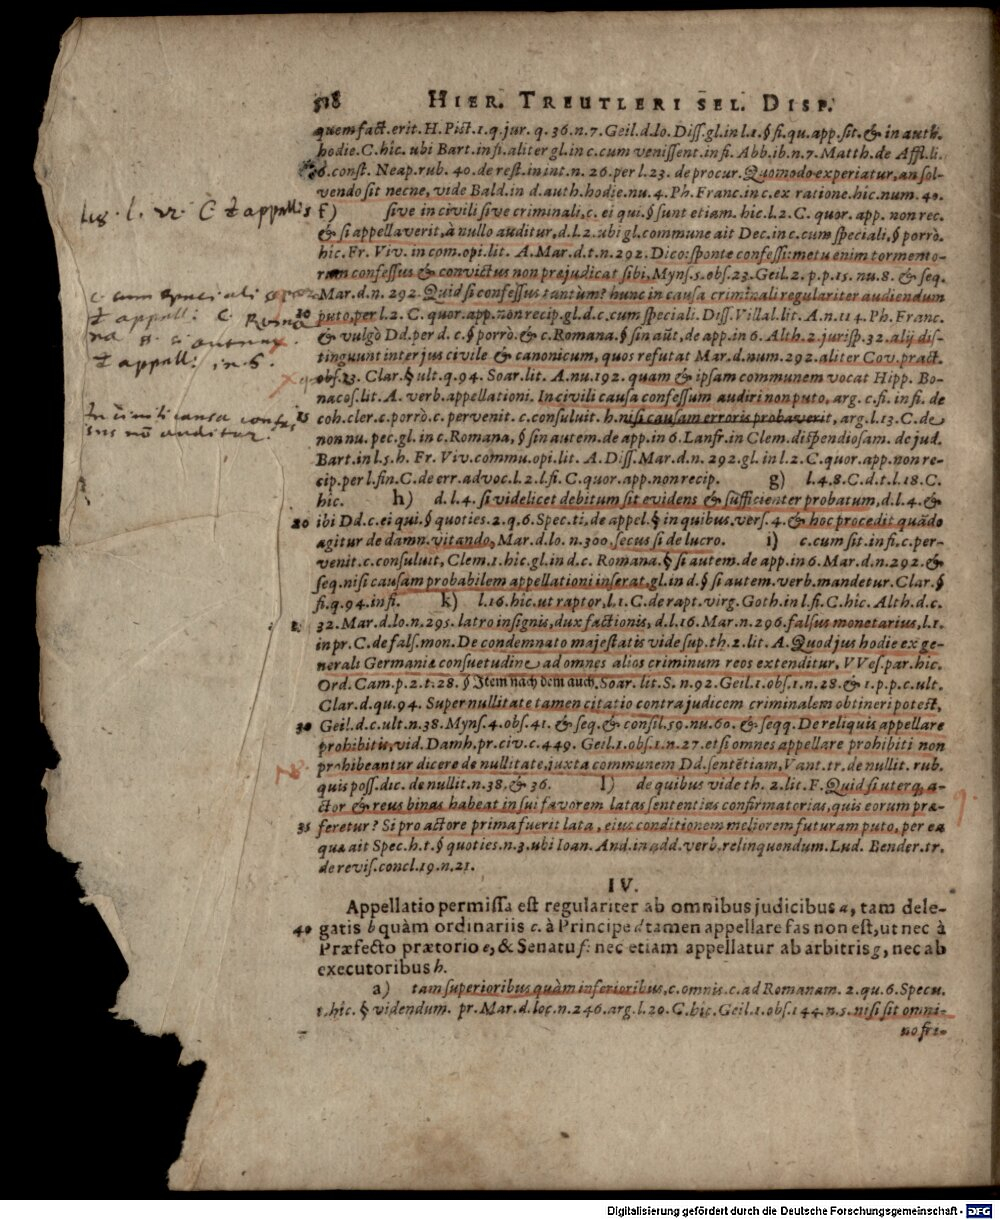 518 HIER. TREUTLERI SEL. DISP.
quem fact. erit. H. Pist. 1. q. jur. q. 36. n. 7. Geil. d. lo. Diss. gl. in l. 1. § si. qu. app. sit. & in auth.
hodie. C. hic. ubi Bart. in fi. aliter gl. in c. cum venissent. in fi. Abb. ib. n. 7. Matth. de Affl. li.
6. const. Neap. rub. 40. de rest. in int. n. 26. per l. 23. de procur. Quomodo experiatur, an sol-
vendo sit necne, vide Bald. in d. auth. hodie. nu. 4. Ph. Franc. in c. ex ratione. hic. num. 40.
f) sive in civili sive criminali, c. ei qui. § sunt etiam. hic. l. 2. C. quor. app. non rec.
& si appellaverit, à nullo auditur, d. l. 2. ubi gl. commune ait Dec. in c. cum speciali, § porrò.
hic. Fr. Viv. in com. opi. lit. A. Mar. d. t. n. 292. Dico: sponte confessi: metu enim tormento-
rum confessus & convictus non præjudicat sibi, Myns. 5. obs. 23. Geil. 2. p. p. 15. nu. 8. & seq.
Mar. d. n. 292. Quid si confessus tantùm? hunc in causa criminali regulariter audiendum
10 puto, per l. 2. C. quor. app. non recip. gl. d. c. cum speciali. Diss. Villal. lit. A. n. 114. Ph. Franc.
& vulgò Dd. per d. c. § porrò. & c. Romana. § sin aût, de app. in 6. Alth. 2. jurisp. 32. alij dis-
tinguunt inter jus civile & canonicum, quos refutat Mar. d. num. 292. aliter Cov. pract.
obs. 23. Clar. § ult. q. 94. Soar. lit. A. nu. 192. quam & ipsam communem vocat Hipp. Bo-
nacos. lit. A. verb. appellationi. In civili causa confessum audiri non puto, arg. c. fi. in fi. de
15 coh. cler. c. porrò. c. pervenit. c. consuluit. h. nisi causam erroris probaverit, arg. l. 13. C. de
non nu. pec. gl. in c. Romana, § sin autem. de app. in 6. Lanfr. in Clem. dispendiosam. de jud.
Bart. in l. 5. h. Fr. Viv. commu. opi. lit. A. Diss. Mar. d. n. 292. gl. in l. 2. C. quor. app. non re-
cip. per l. fin. C. de err. advoc. l. 2. l. fi. C. quor. app. non recip. g) l. 4. 8. C. d. t. l. 18. C.
hic. h) d. l. 4. si videlicet debitum sit evidens & sufficienter probatum, d. l. 4. &
20 ibi Dd. c. ei qui. § quoties. 2. q. 6. Spec. ti, de appel. § in quibus. vers. 4. & hoc procedit quādo
agitur de damn. vitando, Mar. d. lo. n. 300. secus si de lucro. i) c. cum sit. in fi. c. per-
venit. c. consuluit, Clem. 1. hic. gl. in d. c. Romana. § si autem. de app. in 6. Mar. d. n. 292. &
seq. nisi causam probabilem appellationi inserat, gl. in d. § si autem. verb. mandetur. Clar. §
fi. q. 94. in fi. k) l. 16. hic. ut raptor, l. 1. C. de rapt. virg. Goth. in l. fi. C. hic. Alth. d. c.
32. Mar. d. lo. n. 295. latro insignis, dux factionis, d. l. 16. Mar. n. 296. falsus monetarius, l. 1.
in pr. C. de fals. mon. De condemnato majestatis vide sup. th. 2. lit. A. Quod jus hodie ex ge-
nerali Germaniæ consuetudine ad omnes alios criminum reos extenditur, VVes. par. hic.
Ord. Cam. p. 2. t. 28. § Item nach dem auch. Soar. lit. S. n. 92. Geil. 1. obs. 1. n. 28. & 1. p. p. c. ult.
Clar. d. qu. 94. Super nullitate tamen citatio contra judicem criminalem obtineri potest,
30 Geil. d. c. ult. n. 38. Myns. 4. obs. 41. & seq. & consil. 59. nu. 60. & seqq. De reliquis appellare
prohibitis, vid. Damh. pr. civ. c. 449. Geil. 1. obs. 1. n. 27. et si omnes appellare prohibiti non
prohibeantur dicere de nullitate, juxta communem Dd. sentētiam, Vant. tr. de nullit. rub.
quis poss. dic. de nullit. n. 38. & 36. l) de quibus vide th. 2. lit. F. Quid si uterq, a-
ctor & reus binas habeat in sui favorem latas sententias confirmatorias, quis eorum præ-
35 feretur? Si pro actore prima fuerit lata, eius conditionem meliorem futuram puto, per ea
quæ ait Spec. h. t. § quoties. n. 3. ubi Ioan. And. in add. verb. relinquendum. Lud. Bender. tr.
de revis. concl. 19. n. 21.
IV.
Appellatio permissa est regulariter ab omnibus judicibus a, tam dele-
40 gatis b quàm ordinariis c. à Principe d tamen appellare fas non est, ut nec à
Præfecto prætorio e, & Senatu f: nec etiam appellatur ab arbitris g, nec ab
executoribus h.
a) tam superioribus quàm inferioribus, c. omnis. c. ad Romanam. 2. qu. 6. Specu.
t. hic. § videndum. pr. Mar. d. loc. n. 246. arg. l. 20. C. hic. Geil. 1. obs. 144. n. 5. nisi sit omni-
no fri-
In civili causa confes
sus nō auditur.